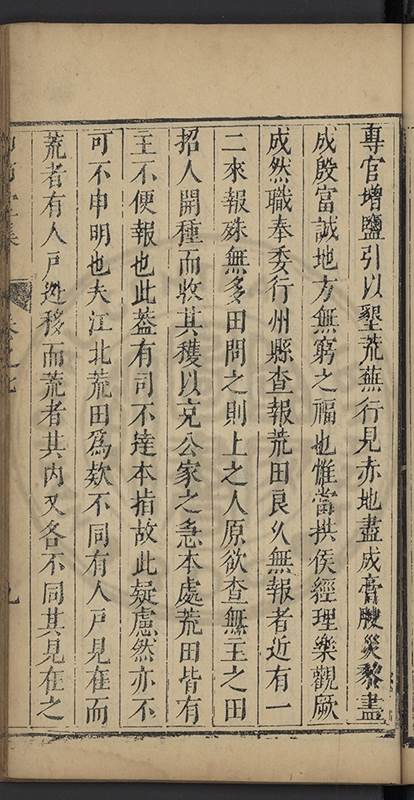 專官增鹽引以墾荒蕪行見赤地盡成膏腴災黎盡
成殷富誠地方無窮之福也惟當拱俟經理樂觀厥
成然職奉委行州縣查報荒田良久無報者近有一
二來報殊無多田問之則上之人原欲查無主之田
招人開種而收其穫以充公家之急本處荒田皆有
主不便報也此葢有司不達本指故此疑慮然亦不
可不申明也夫江北荒田爲欵不同有人戸見在而
荒者有人戸迯移而荒者其内又各不同其見在之
集
卷之七
九